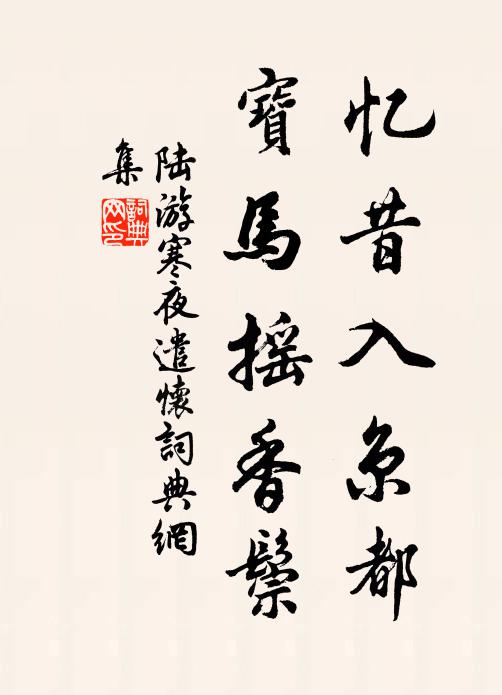 忆昔入京都
寶馬摇香鬃
陆游寒夜遣懷詞典網
集
詞典
网印